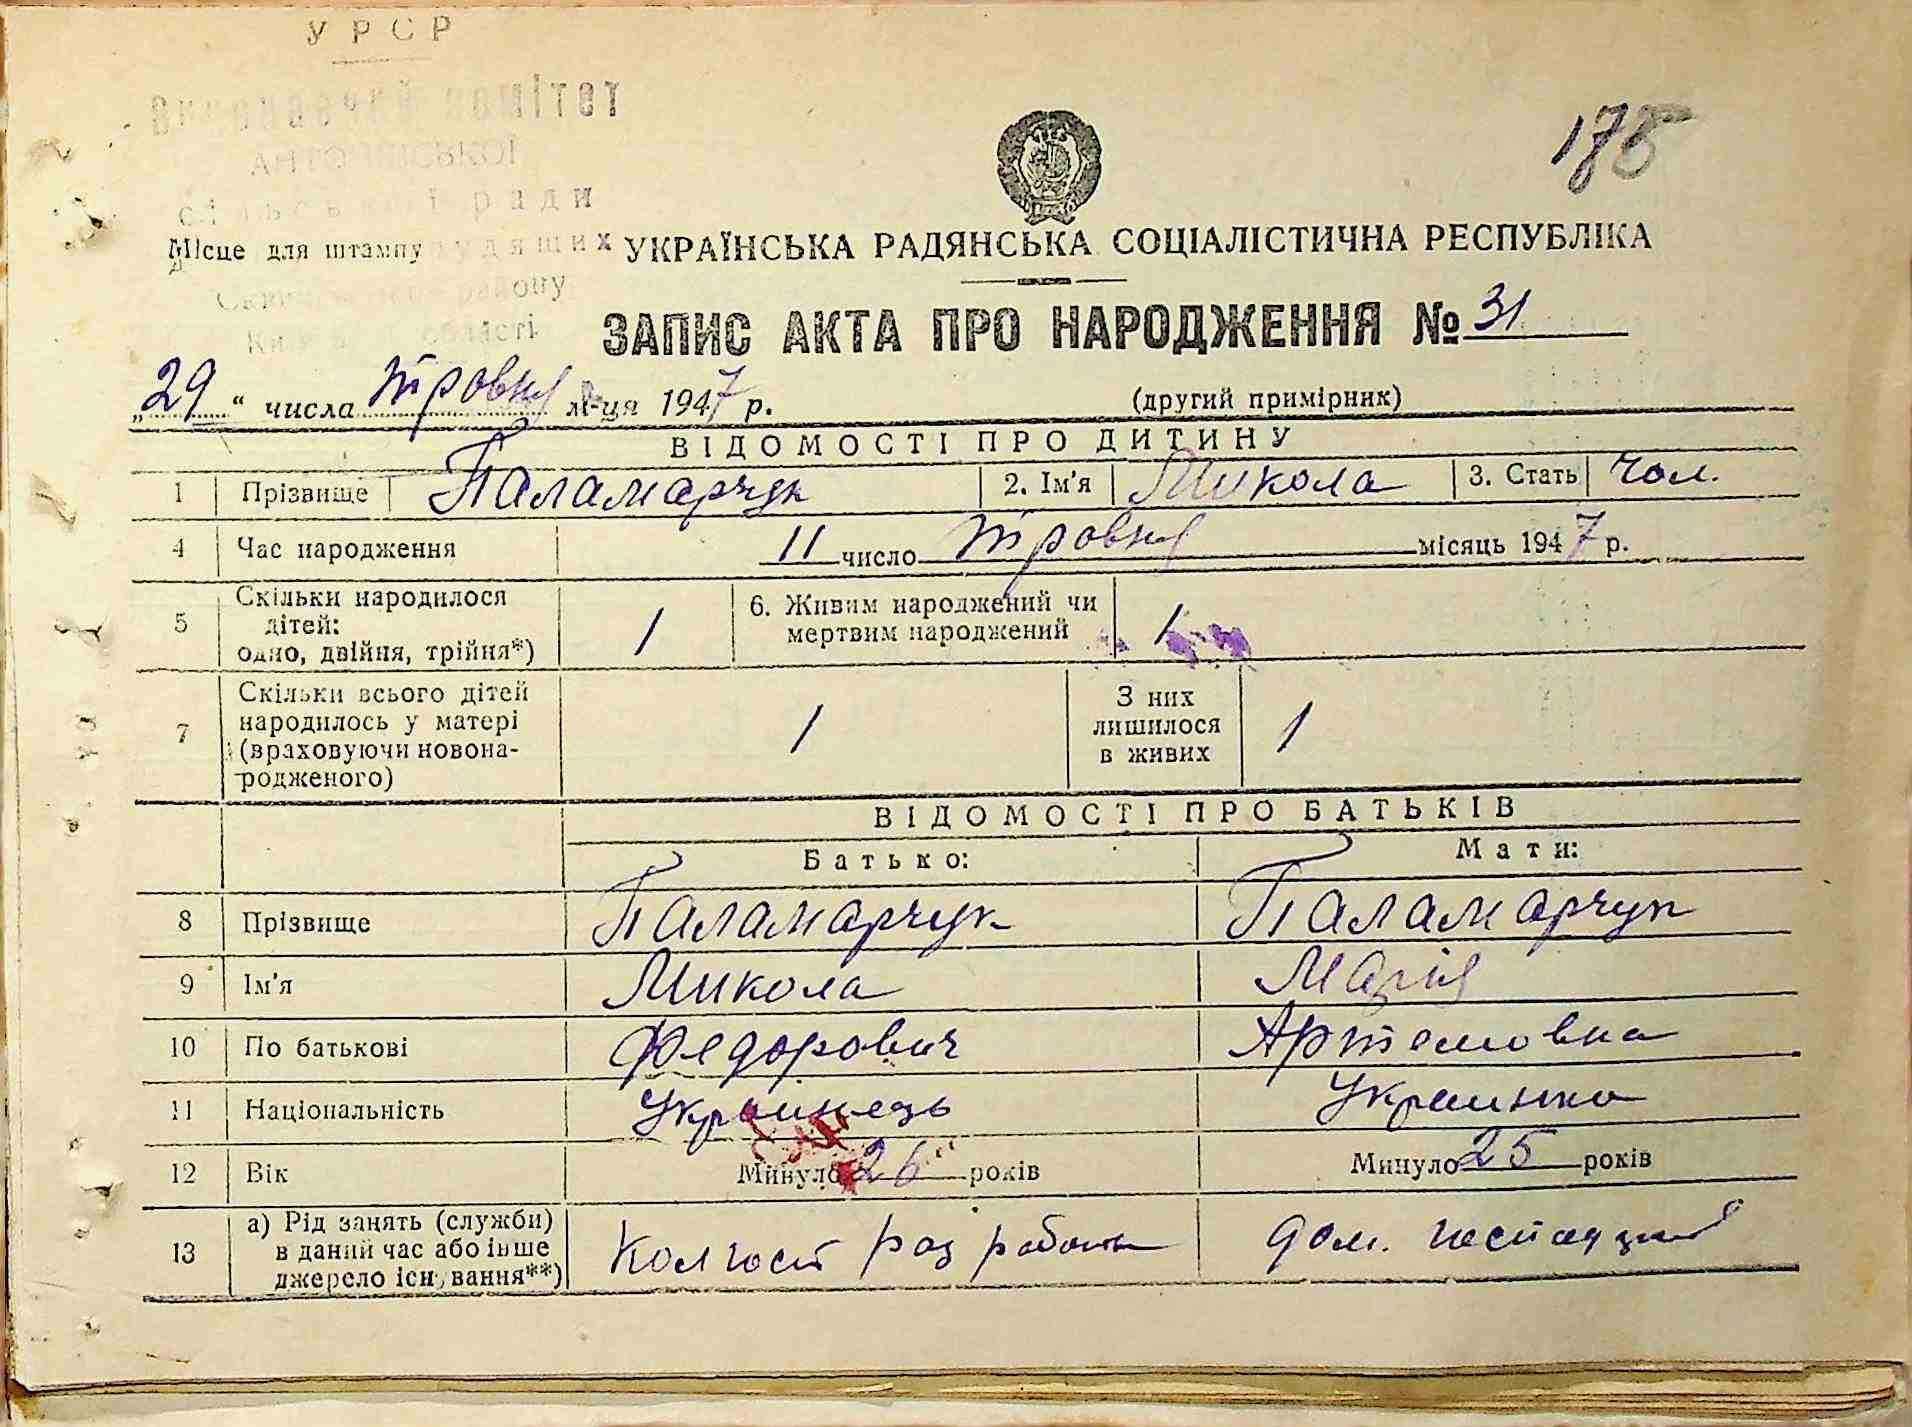 УРСР
Виконавчий комітет
АНТОНІВСЬКОЇ
сільської ради
178
Місце для штампу
трудящих
району
області
УКРАЇНСЬКА РАДЯНСЬКА СОЦІАЛІСТИЧНА РЕСПУБЛІКА
ЗАПИС АКТА ПРО НАРОДЖЕННЯ № 31
„29“ числа травня м-ця 1947 р. (другий примірник)
ВІДОМОСТІ ПРО ДИТИНУ
1 Прізвище Паламарчук 2. Ім'я Микола 3. Стать Чол.
4 Час народження 11 число травня місяць 1947 р.
5 Скільки народилося дітей: одно, двійня, трійня*) 1 6. Живим народжений чи мертвим народжений 1
7 Скільки всього дітей народилось у матері (враховуючи новонародженого) 1 З них лишилося в живих 1
ВІДОМОСТІ ПРО БАТЬКІВ
Батько: Мати:
8 Прізвище Паламарчук Паламарчук
9 Ім'я Микола Марія
10 По батькові Федорович Артемовна
11 Національність Украинець Украинка
12 Вік Минуло 26 років Минуло 25 років
13 а) Рід занять (служби) в даний час або інше джерело існування**) Колгосп раз работы дом.